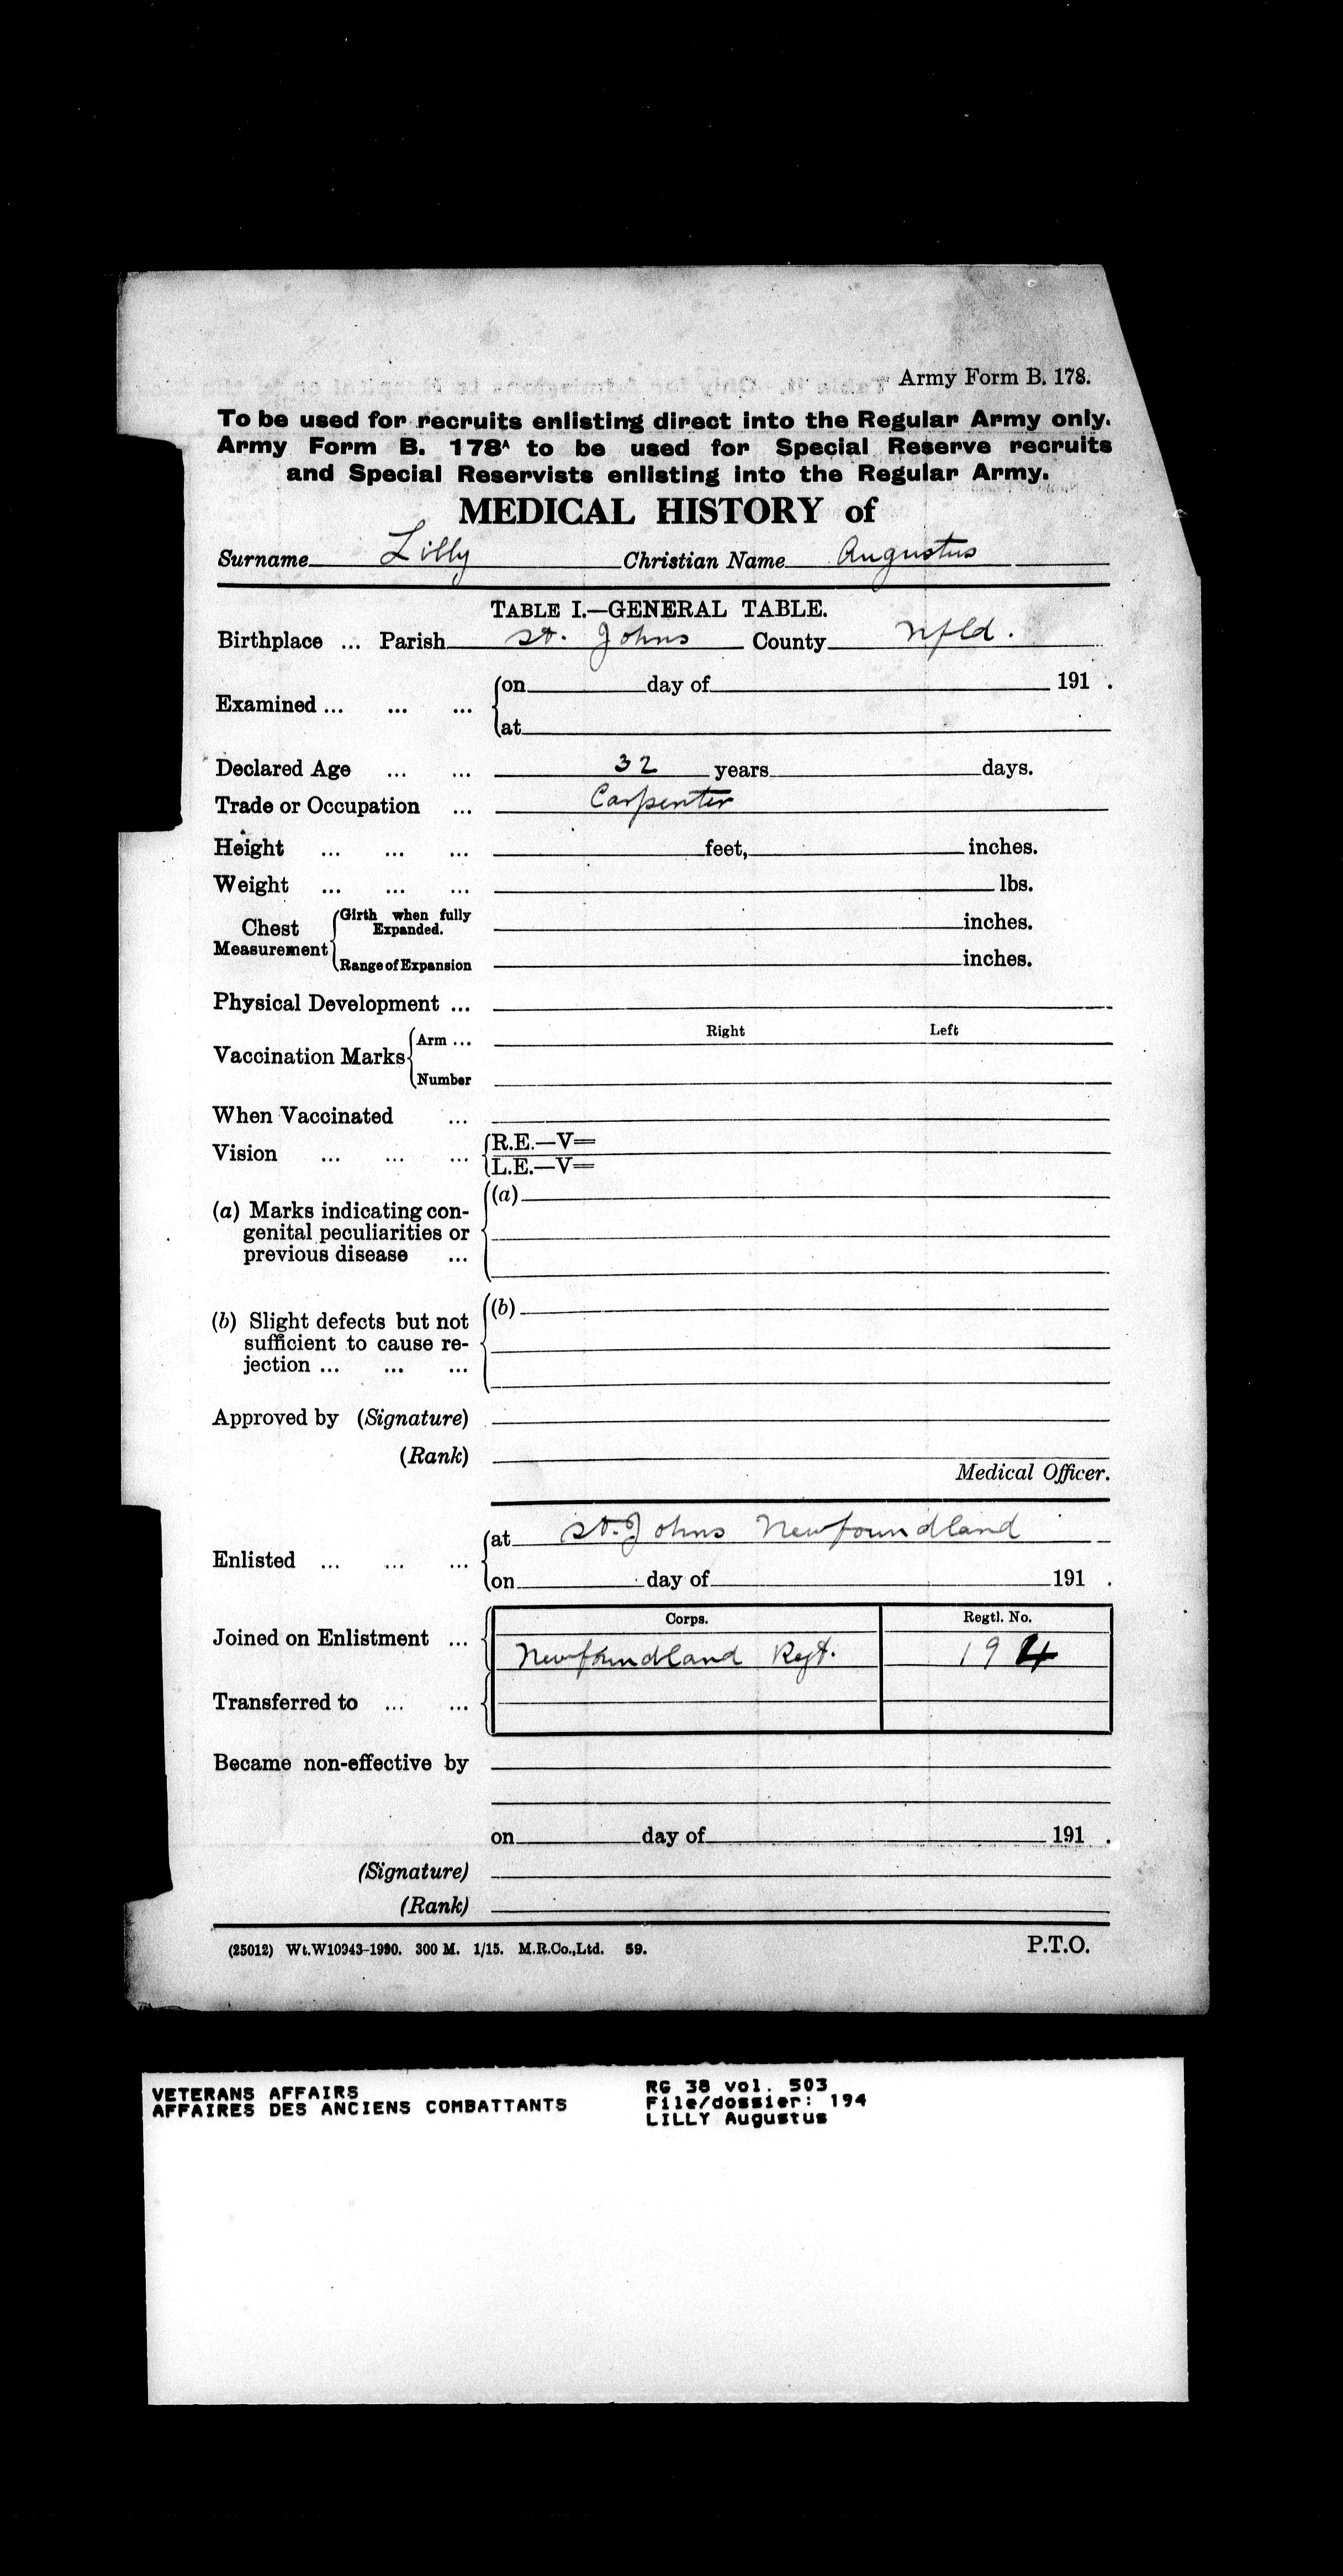 Army Form B. 178.
To be used for recruits enlisting direct into the Regular Army only.
Army Form B. 178A to be used for Special Reserve recruits
and Special Reservists enlisting into the Regular Army.
MEDICAL HISTORY of
Surname Lilly Christian Name Augustus
TABLE I.—GENERAL TABLE.
Birthplace ... Parish St. Johns County Nfld.
Examined ... ... ... on day of 191 .
at
Declared Age ... ... 32 years days.
Trade or Occupation ... Carpenter
Height ... ... ... feet, inches.
Weight ... ... ... lbs.
Chest Measurement Girth when fully Expanded. inches.
Range of Expansion inches.
Physical Development ...
Right Left
Vaccination Marks Arm ...
Number
When Vaccinated ...
Vision ... ... ... R.E.—V=
L.E.—V=
(a) Marks indicating con- (a)
genital peculiarities or
previous disease ...
(b) Slight defects but not (b)
sufficient to cause re-
jection ... ... ...
Approved by (Signature)
(Rank)
Medical Officer.
Enlisted ... ... ... at St. Johns Newfoundland
on day of 191 .
Corps. Regtl. No.
Joined on Enlistment ... Newfoundland Regt. 194
Transferred to ... ...
Became non-effective by
on day of 191 .
(Signature)
(Rank)
(25012) Wt.W10943-1990. 300 M. 1/15. M.R.Co.,Ltd. 59. P.T.O.
VETERANS AFFAIRS RG 38 vol. 503
AFFAIRES DES ANCIENS COMBATTANTS File/dossier: 194
LILLY Augustus